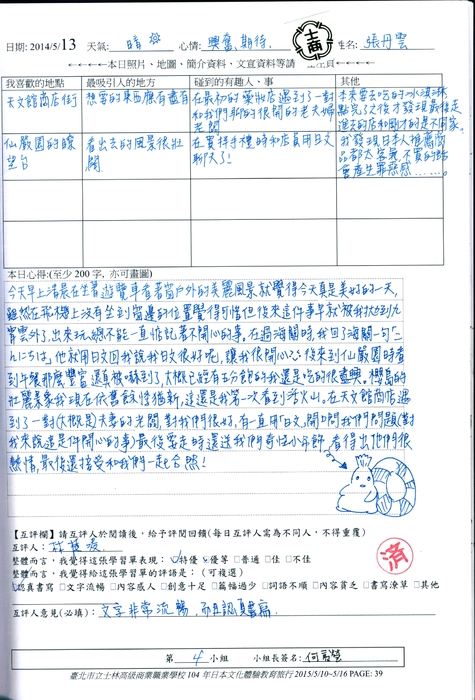 日期: 2014/5/13 天氣: 晴 心情: 興奮、期待. 姓名: 張丹雲
←←←←本日照片、地圖、簡介資料、文宣資料等請
我喜歡的地點 最吸引人的地方 碰到的有趣人、事 其他
天文館商店街 想要的東西應有盡有 在最初的藥妝店遇到了一對和我們聊的很開的老夫婦老闆
仙嚴園的瞭望台 看出去的風景很壯闊 在買手機時和店員用日文聊天了!
本日心得:(至少 200 字, 亦可畫圖)
今天早上清晨在坐著遊覽車看著窗戶外的美麗風景就覺得今天真是美好的一天,
雖然在飛機上沒有坐到窗邊的位置覺得可惜但後來這件事早就被我拋到九
霄雲外了,出來玩總不能一直惦記著不開心的事。在過海關時,我回了海關一句「こ
んにちは」他就用日文回我說我日文很好呢,讓我很開心~後來到仙嚴園時看
到午餐那麼豐富還真被嚇到了,大概已經有五分飽的我還是吃的很盡興。櫻島的
壯麗景象我現在依舊記憶猶新,這還是我第一次看到活火山。在天文館商店街
遇到了一對(大概是)夫妻的老闆,對我們很好,有一直用日文,開口問我們問題(對
我來說這是件開心的事)最後要走時還送我們奇怪小年餅,看得出他們很
熱情,最後還接受和我們一起合照!
【互評欄】請互評人於閱讀後,給予評閱回饋(每日互評人需為不同人,不得重覆)
互評人:
整體而言,我覺得這張學習單表現: □特優 □優等 □普通 □佳 □不佳
整體而言,我覺得給這張學習單的評語是:(可複選)
□認真書寫 □文字流暢 □內容感人 □創意十足 □篇幅過少 □詞語不順 □內容貧乏 □書寫潦草 □其他
済
互評人意見(必填): 文字非常流暢,而且認真書寫.
第 4 小組 小組長簽名:
臺北市立士林高級商業職業學校 104 年日本文化體驗教育旅行 2015/5/10~5/16 PAGE: 39